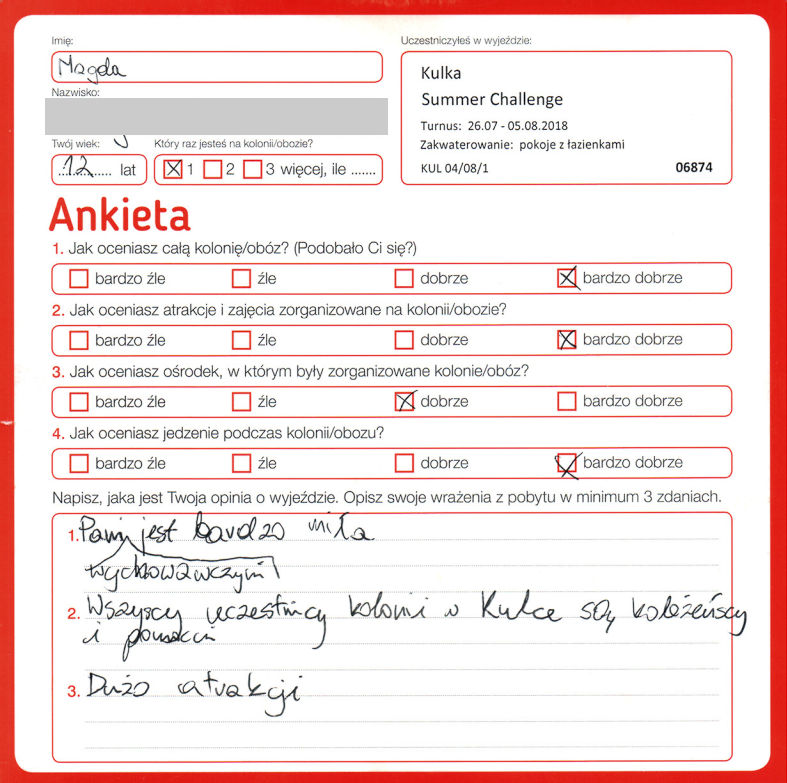 Imię:
Magda
Nazwisko:
Twój wiek:
12 lat
Który raz jesteś na kolonii/obozie?
1 2 3 więcej, ile .......
Uczestniczyłeś w wyjeździe:
Kulka
Summer Challenge
Turnus: 26.07 - 05.08.2018
Zakwaterowanie: pokoje z łazienkami
KUL 04/08/1 06874
Ankieta
1. Jak oceniasz całą kolonię/obóz? (Podobało Ci się?)
bardzo źle źle dobrze bardzo dobrze
2. Jak oceniasz atrakcje i zajęcia zorganizowane na kolonii/obozie?
bardzo źle źle dobrze bardzo dobrze
3. Jak oceniasz ośrodek, w którym były zorganizowane kolonie/obóz?
bardzo źle źle dobrze bardzo dobrze
4. Jak oceniasz jedzenie podczas kolonii/obozu?
bardzo źle źle dobrze bardzo dobrze
Napisz, jaka jest Twoja opinia o wyjeździe. Opisz swoje wrażenia z pobytu w minimum 3 zdaniach.
1. Pani jest bardzo miła
wychowawczyni
2. Wszyscy uczestnicy kolonii w Kulce są koleżeńscy
i pomocni
3. Dużo atrakcji